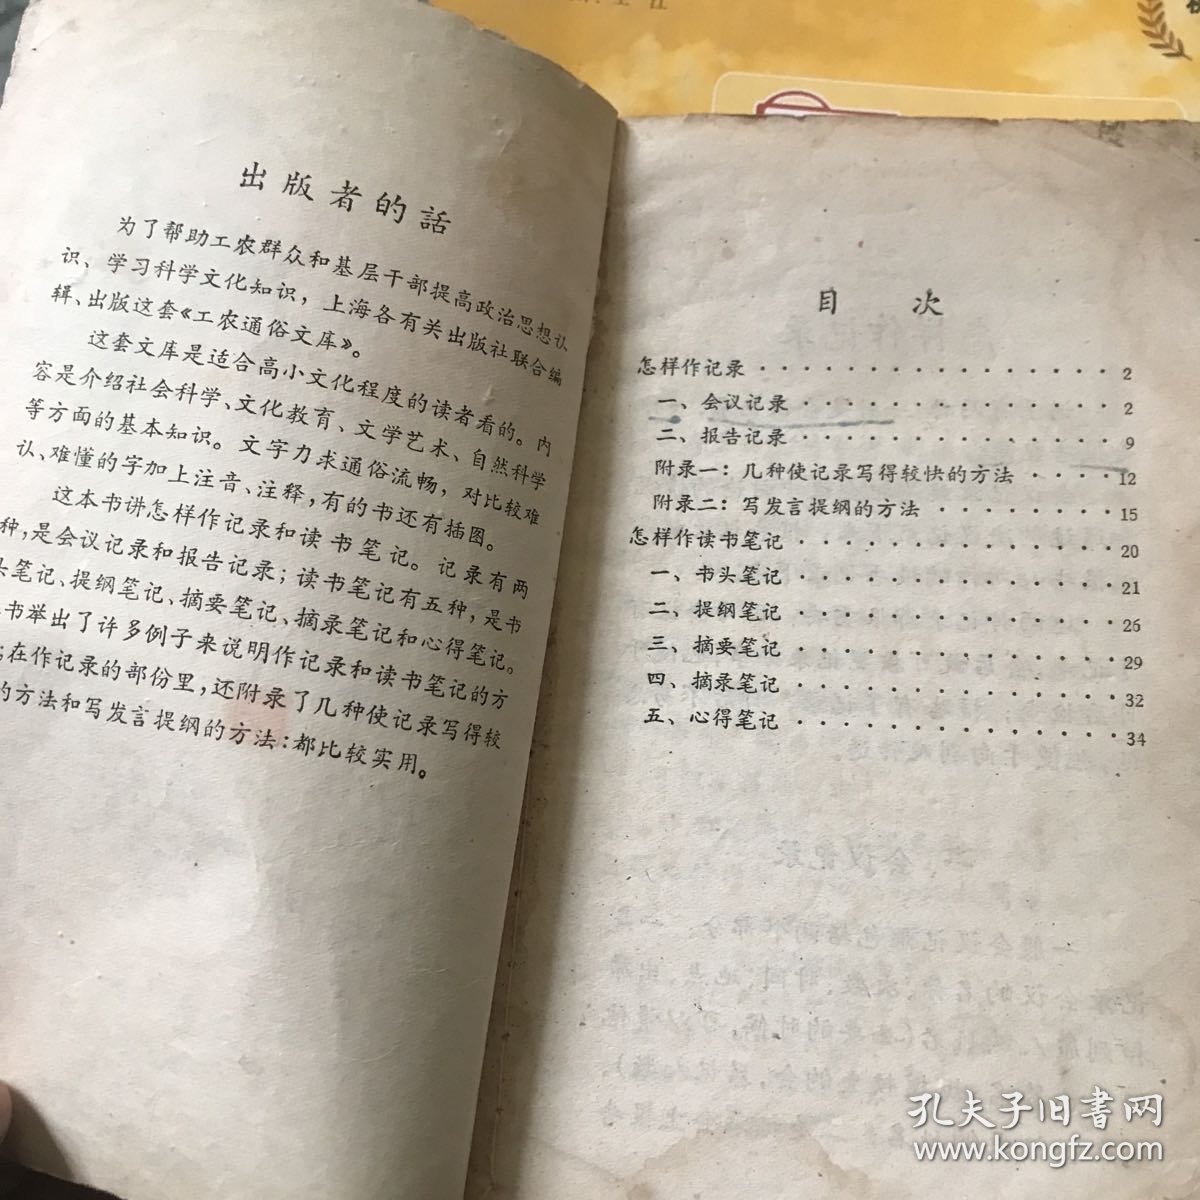 出版者的話
为了帮助工农群众和基层干部提高政治思想认
识、学习科学文化知识，上海各有关出版社联合编
辑、出版这套《工农通俗文库》。
这套文库是适合高小文化程度的读者看的。内
容是介绍社会科学、文化教育、文学艺术、自然科学
等方面的基本知识。文字力求通俗流畅，对比较难
认、难懂的字加上注音、注释，有的书还有插图。
这本书讲怎样作记录和读书笔记。记录有两
种，是会议记录和报告记录；读书笔记有五种，是书
头笔记、提纲笔记、摘要笔记、摘录笔记和心得笔记。
书举出了许多例子来说明作记录和读书笔记的方
；在作记录的部份里，还附录了几种使记录写得较
的方法和写发言提纲的方法：都比较实用。
目 次
怎样作记录 · · · · · · · · · · · · · · · · 2
一、会议记录 · · · · · · · · · · · · · · 2
二、报告记录 · · · · · · · · · · · · · · 9
附录一：几种使记录写得较快的方法 · · · · 12
附录二：写发言提纲的方法 · · · · · · · · 15
怎样作读书笔记 · · · · · · · · · · · · · · 20
一、书头笔记 · · · · · · · · · · · · · · 21
二、提纲笔记 · · · · · · · · · · · · · · 26
三、摘要笔记 · · · · · · · · · · · · · · 29
四、摘录笔记 · · · · · · · · · · · · · · 32
五、心得笔记 · · · · · · · · · · · · · · 34
孔夫子旧书网
www.kongfz.com